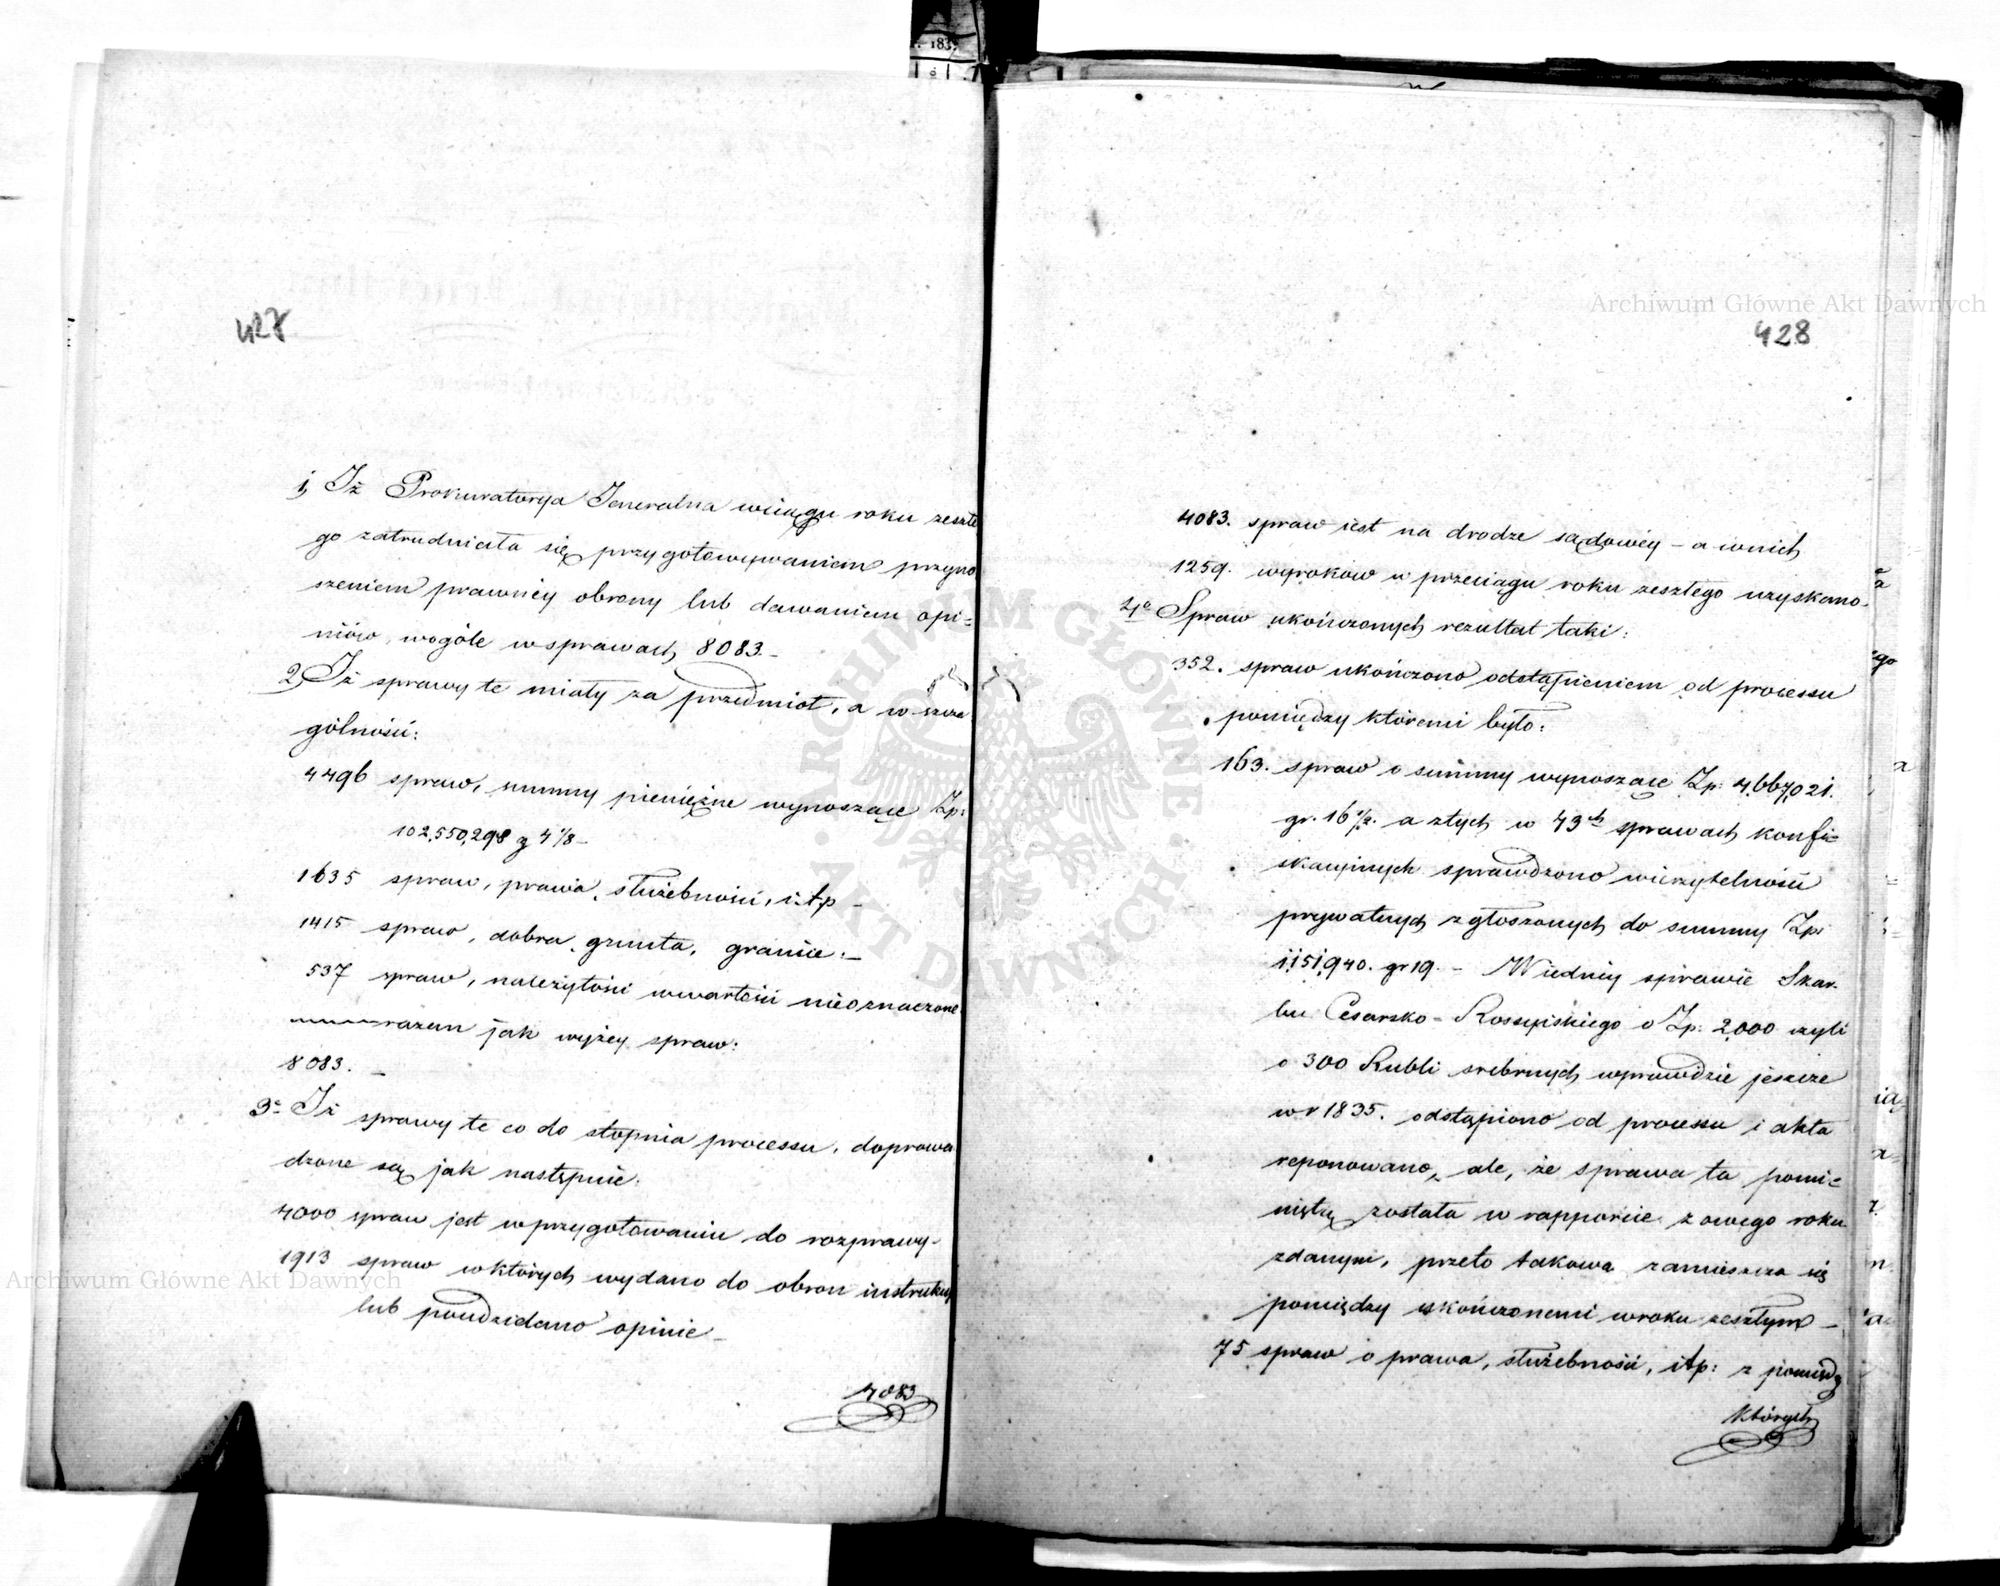 427
1, Iż Prokuratorya Jeneralna wciągu roku zeszłe
go zatrudniała się przygotowywaniem przyno
szeniem prawnéy obrony lub dawaniem opi=
niów, wogóle wsprawach 8083.-
2, Iż sprawy te miały za przedmiot, a w szcze
gólności:
4496 spraw, summy pieniężne wynoszące Zp:
102,550,298 g 4 1/8 -
1635 spraw, prawa, służebności, i.t.p -
1415 spraw, dobra, grunta, granice: -
537 spraw, należytości wwartości nieoznaczone
razem jak wyżey spraw:
8083. -
3e Iż sprawy te co do stopnia processu, doprowa
dzone są jak następuie:
4000 spraw jest wprzygotowaniu do rozprawy-
1913 spraw wktórych wydano do obron instrukcye
lub poudzielano opinie -
4083
428
4083. spraw iest na drodze sądowéy - a wnich
1259. wyroków w przeciągu roku zeszłego uzyskano.
4e Spraw ukończonych rezultat taki:
352. spraw ukończono odstąpieniem od processu
pomiędzy któremi było:
163. spraw o summy wynoszące Zp: 4,667,021.
gr. 16 1/2. a ztych w 43ch sprawach konfi=
skacyinych sprawdzono wierzytelności
prywatnych zgłoszonych do summy Zp:
1,151,940. gr 19. - Wiednéy sprawie Skar-
bu Cesarsko-Rossyiskiego o Zp: 2,000 czyli
o 300 Rubli srebrnych wprawdzie jeszcze
w r 1835. odstąpiono od processu i akta
reponowano, ale, że sprawa ta pomi=
niętą została w rapporcie z owego roku
zdanym, przeto takowa zamieszcza się
pomiędzy ukończonemi wroku zeszłym -
75 spraw o prawa, służebności, itp: z pomiędzy
których